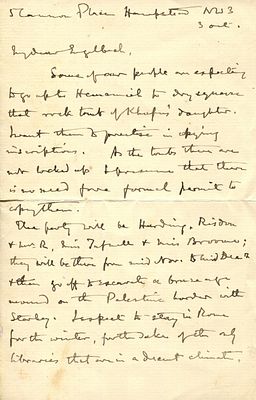 5 Cannon Place Hampstead NW3
3 Oct.
My dear Engelbach,
Some of our people are expecting
to go up to Hemamieh to dry squeeze
that rock tomb of Khufu's daughter.
I want them to practise in copying
inscriptions. As the tombs there are
not locked up I presume that there
is no need for a formal permit to
copy them.
The party will be Harding, Risdon
& Mrs R, Miss Tufnell & Miss Broome;
they will be there from mid Nov. to mid Dec
& then go off to excavate a bronze age
mound on the Palestine border with
Starkey. I expect to stay in Rome
for the winter, for the sake of the only
libraries that are in a decent climate.